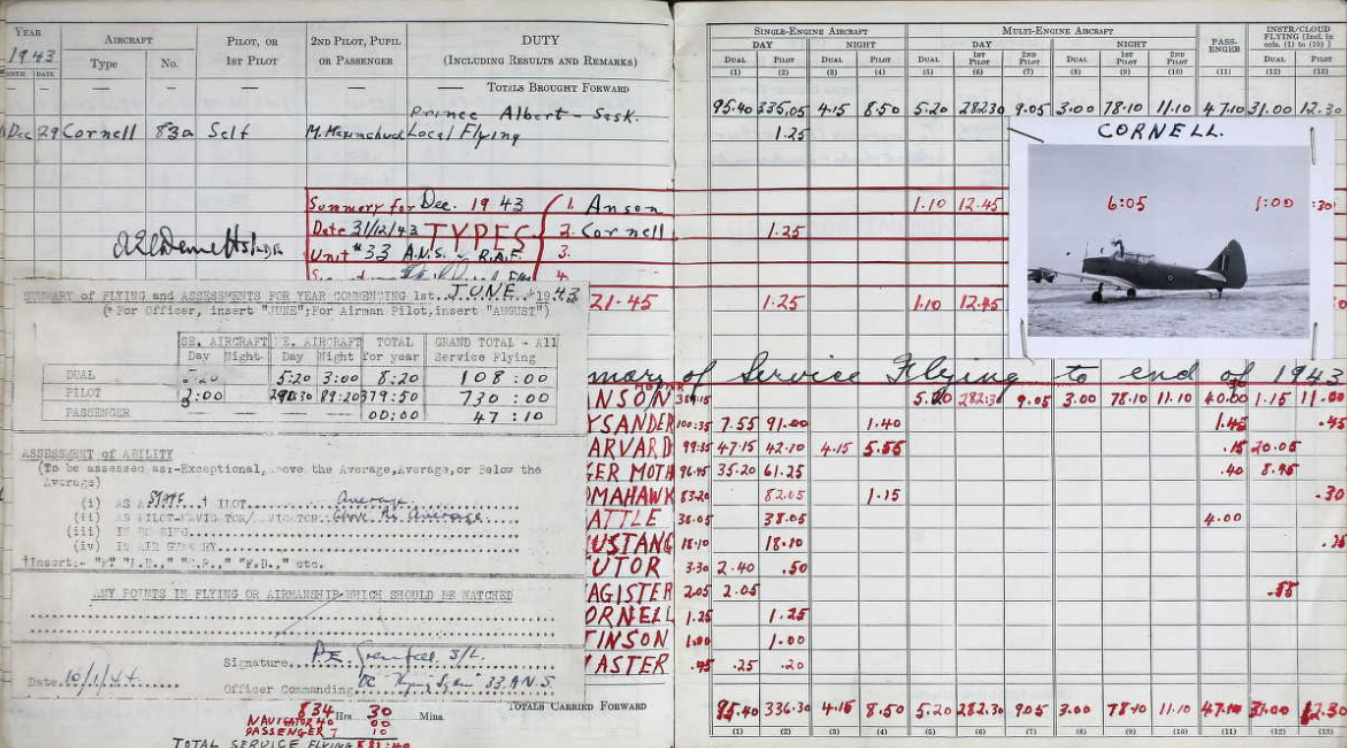 YEAR 1943
AIRCRAFT
PILOT, OR 1ST PILOT
2ND PILOT, PUPIL OR PASSENGER
DUTY (INCLUDING RESULTS AND REMARKS)
SINGLE-ENGINE AIRCRAFT
MULTI-ENGINE AIRCRAFT
PASS-ENGER
INSTR/CLOUD FLYING (Incl. in cols. (1) to (10) )
MONTH DATE Type No.
DAY NIGHT DAY NIGHT
DUAL PILOT DUAL PILOT DUAL 1ST PILOT 2ND PILOT DUAL 1ST PILOT 2ND PILOT DUAL PILOT
(1) (2) (3) (4) (5) (6) (7) (8) (9) (10) (11) (12) (13)
— — — — — — — TOTALS BROUGHT FORWARD
95.40 335.05 4.15 8.50 5.20 282.30 9.05 3.00 78.10 11.10 47.10 31.00 12.30
Prince Albert - Sask.
Dec 29 Cornell 830 Self Local Flying 1.25
CORNELL.
Summary for Dec. 1943 1. Anson 1.10 12.45 6:05 1:00 :30
Date 31/12/43 TYPES 2. Cornell 1.25
Unit #33 A.N.S. - R.A.F. 3.
4.
21.45 1.25 1.10 12.45
SUMMARY of FLYING and ASSESSMENTS FOR YEAR COMMENCING 1st JUNE *1943
(* For Officer, insert "JUNE";For Airman Pilot,insert "AUGUST")
SE. AIRCRAFT AIRCRAFT TOTAL GRAND TOTAL - All
Day Night Day Night for year Service Flying
DUAL 5:20 3:00 8:20 108:00
PILOT 2:00 290:30 89:20 379:50 730:00
PASSENGER — — — — 00:00 47:10
ASSESSMENT of ABILITY
(To be assessed as:-Exceptional, above the Average,Average,or Below the
Average)
(i) AS A STAFF † ILOT Average
(ii) AS PILOT-NAVIGATOR/ Above the Average
(iii) IN
(iv) IN AIR GUNNERY
†Insert:-
ANY POINTS IN FLYING OR AIRMANSHIP WHICH SHOULD BE WATCHED
Signature P.E. S/L.
Date 10/1/44
Officer Commanding 33 A.N.S.
mary of Service Flying to end of 1943
NSON 5.20 282:30 9.05 3.00 78.10 11.10 40.00 1.15 11.00
YSANDER 100:35 7.55 91.00 1.40 1.45 .45
ARVARD 99:35 47.15 42.20 4.15 5.55 .15 20.05
GER MOTH 96.45 35.20 61.25 .40 8.45
OMAHAWK 83.20 82.05 1.15 .30
ATTLE 38.05 38.05 4.00
USTANG 18.10 18.10
UTOR 3.30 2.40 .50
AGISTER 2.05 2.05 .55
ORNELL 1.25 1.25
TINSON 1.00 1.00
ASTER .45 .25 .20
TOTALS CARRIED FORWARD 95.40 336.30 4.15 8.50 5.20 282.30 9.05 3.00 78.10 11.10 47.10 31.00 12.30
(1) (2) (3) (4) (5) (6) (7) (8) (9) (10) (11) (12) (13)
834 Hrs 30 Mins.
NAVIGATOR 40 00
PASSENGER 7 10
TOTAL SERVICE FLYING 881:40